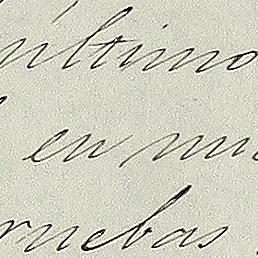 último
en mu
ruebas